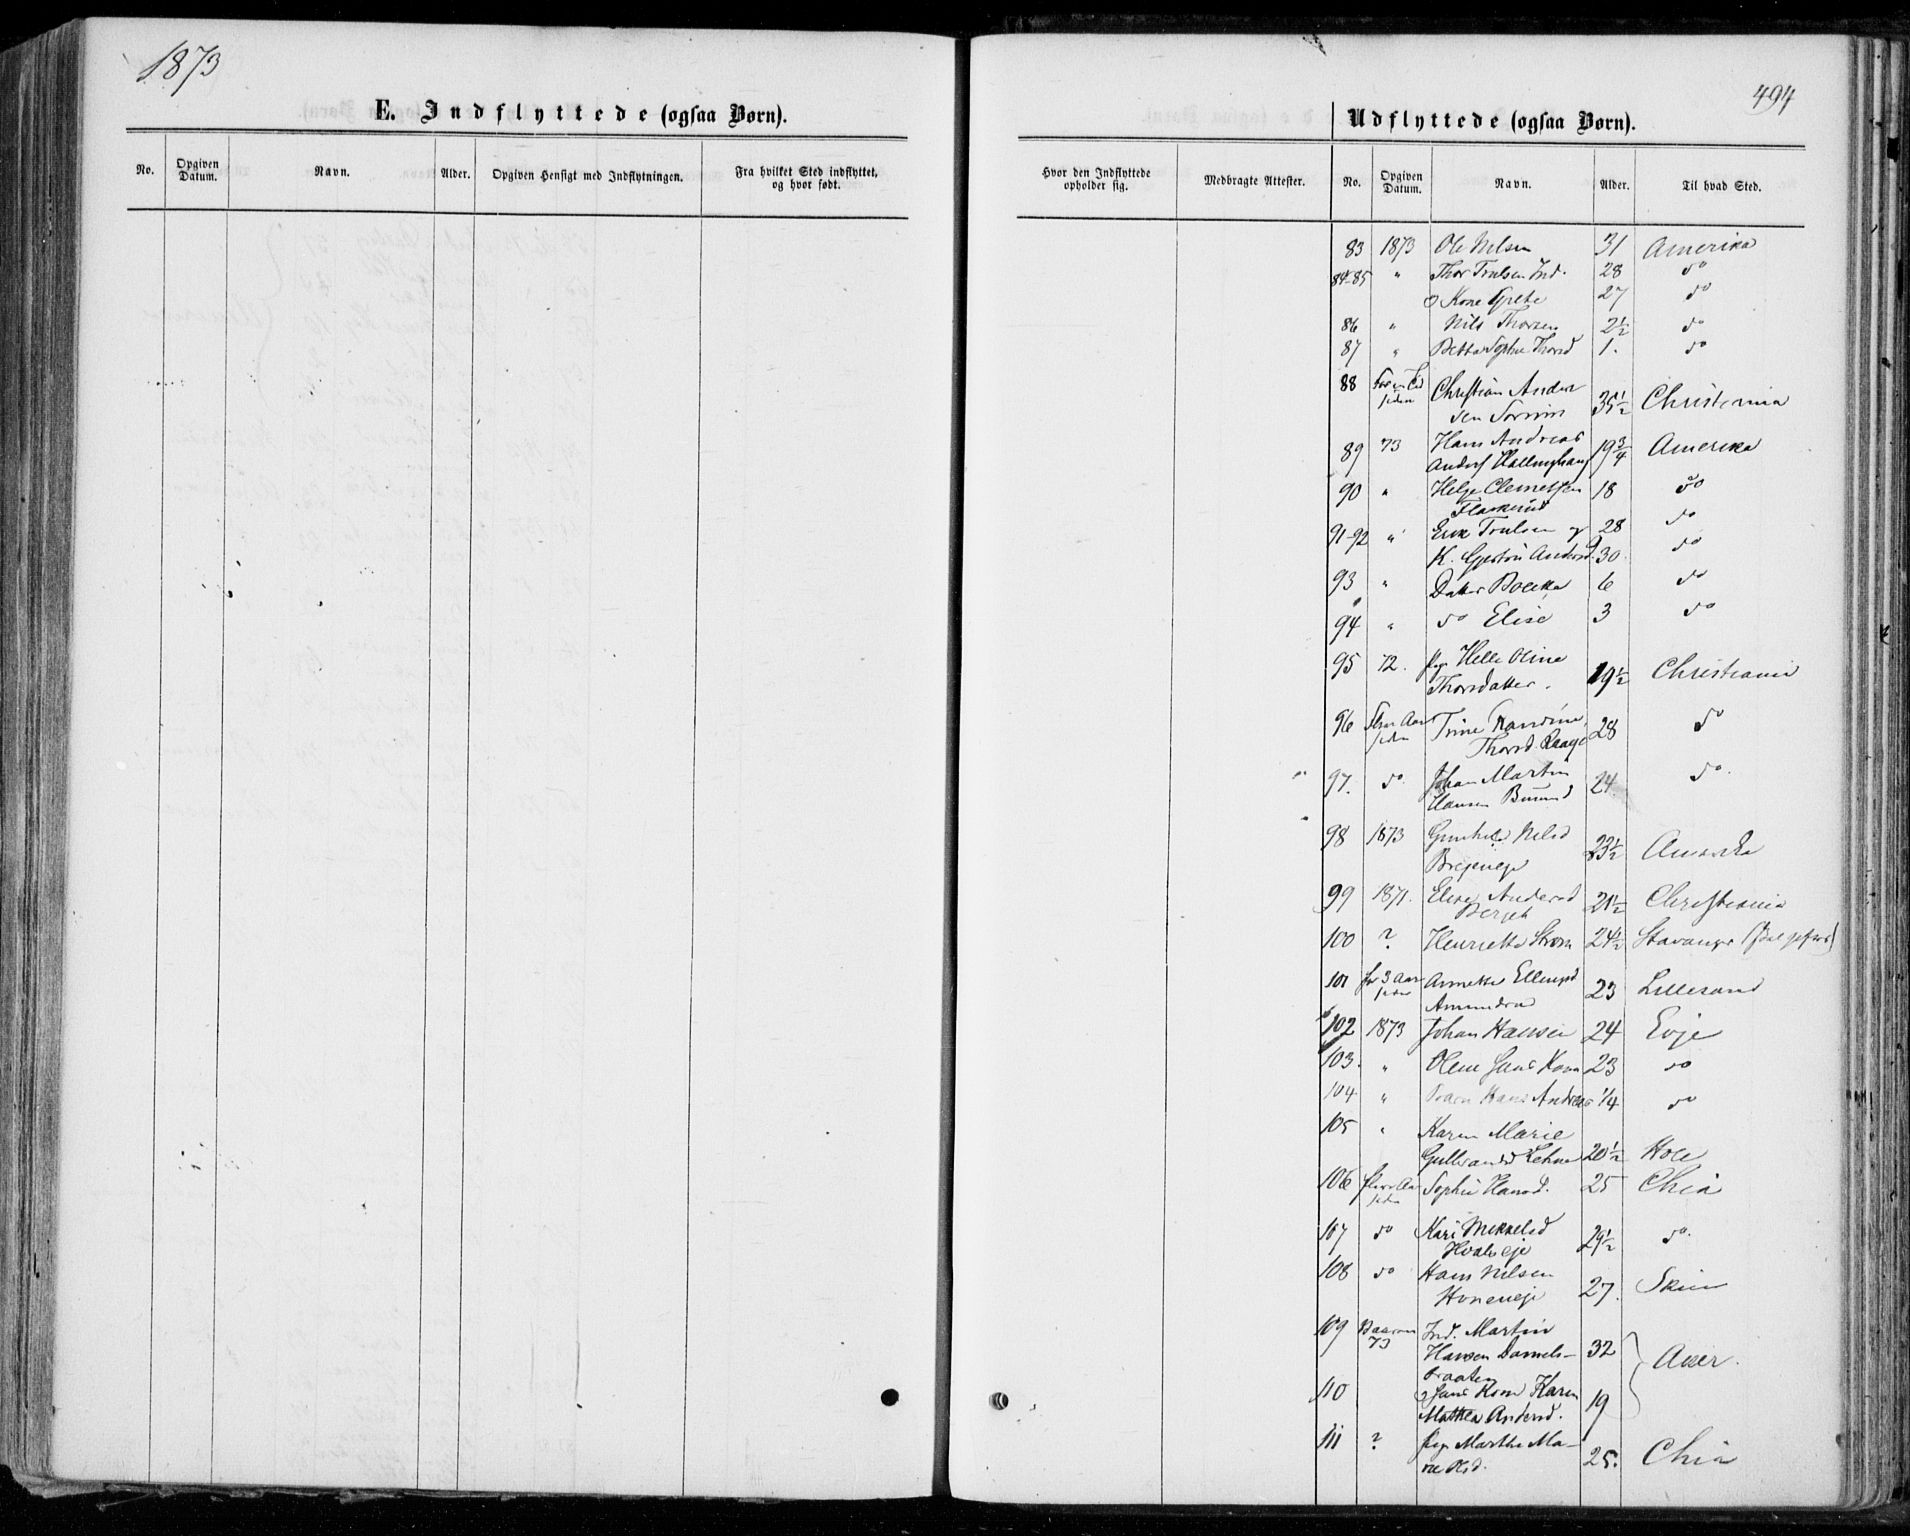 1873
E. Indflyttede (ogsaa Børn).
No. Opgiven Datum. Navn. Alder. Opgiven Hensigt med Indflytningen. Fra hvilket Sted indflyttet, og hvor født.
494
Udflyttede (ogsaa Børn).
Hvor den Indflyttede opholder sig. Medbragte Attester. No. Opgiven Datum. Navn. Alder. Til hvad Sted.
83 1873 Ole Nilsen 31 Amerika
84-85 " Thor Trulsen Ind. 28 do
o Kone Grete 27 do
86 " Nils Thorsen 2½ do
87 " Sophie Thorsd 1. do
88 For en Tid siden Christian Ander
sen 35½ Christiania
89 73 Hans Andreas
Anders 19¾ Amerika
90 " Helge Clemetsen 18 do
Flaskerud
91-92 " Erik Trulsen og 28 do
K. Andersd. 30. do
93 " Datter 6 do
94 " do Elise 3 do
95 72. Helle Oline
Thorsdatter. 19½ Christiania
96 Flere Aar siden Trine Randine
Thorsd. 28 do
97. do. Johan Martin
Hansen 24. do.
98 1873 Gunhild Nilsd
23½ Amerika
99 1871. Elise Andersd
Berget 21½ Christiania
100 ? Henriette Strøm 24½ Stavanger
101 for 3 Aar siden Annette Ellingsd
23 Lillesand
102 1873 Johan Hansen 24 Evje
103. " Olene Hans Kone 23 do
104 " Barn Hans Andreas ¼ do
105 " Karen Marie
20½ Hole
106 flere Aar siden Sophie Hansd. 25 Chia
107 do Kari Mikkelsd
Hvalseje 29½ do.
108 do Hans Nilsen
27. Skien
109 73 Ind. Martin
Hansen Damels- 32
braaten Aker.
110 o Hans Kone Karen
Mathea Andersd. 19
111 ? Pige Marthe Ma-
rie Olsd. 25. Chia